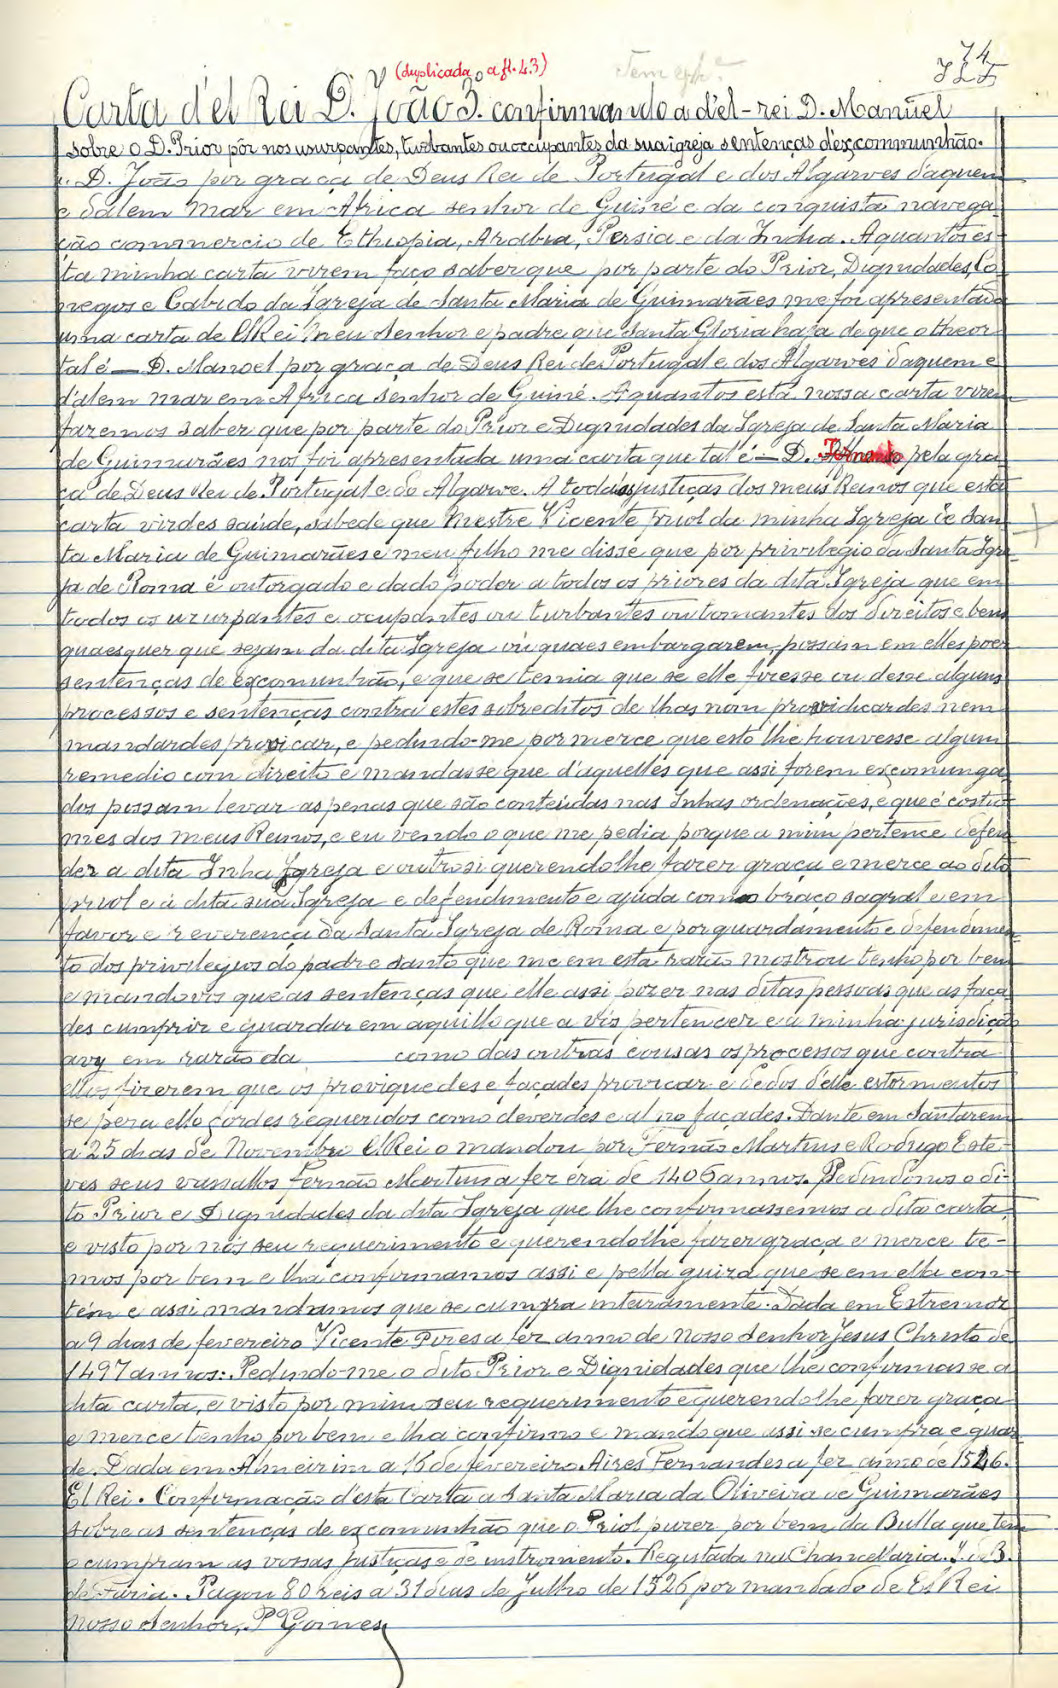 74
(duplicada a fl. 43)
Carta d'el Rei D. João 3.º confirmando a d'el-rei D. Manuel
sobre o D. Prior pôr nos usurpantes, turbantes ou occupantes da sua igreja sentenças d'excommunhão.
D. João por graça de Deus Rei de Portugal e dos Algarves d'aquem
e d'alem mar em Africa senhor de Guiné e da conquista navega-
ção commercio de Ethiopia, Arabia, Persia e da India. Aquantos es-
ta minha carta virem faço saber que por parte do Prior, Dignidades, Co-
negos e Cabido da Igreja de Santa Maria de Guimarães me foi apresentada
uma carta de El Rei meu Senhor e padre que Santa Gloria haja de que o theor
tal é — D. Manoel por graça de Deus Rei de Portugal e dos Algarves d'aquem e
d'alem mar em Africa senhor de Guiné. Aquantos esta nossa carta virem
faremos saber que por parte do Prior e Dignidades da Igreja de Santa Maria
de Guimarães nos foi apresentada uma carta que tal é — D. Fernando pela gra-
ça de Deus Rei de Portugal e do Algarve. A todas justiças dos meus Reinos que esta
carta virdes saúde, sabede que Mestre Vicente priol da minha Igreja de San-
ta Maria de Guimarães e meu filho me disse que por privilegio da Santa Igre-
ja de Roma é outorgado e dado poder a todos os priores da dita Igreja que em
todos os usurpantes e ocupantes ou turbantes ou tomantes dos direitos e bens
quaesquer que sejam da dita Igreja ou quaes embargarem, possam em elles poer
sentenças de excomunhão, e que se temia que se elle fizesse ou desse alguns
processos e sentenças contra estes sobreditos de lhas nom provicardes nem
mandardes provicar, e pedindo-me por merce que esto lhe houvesse algum
remedio com direito e mandasse que d'aquelles que assi forem excomunga-
dos possam levar as penas que são conteudas nas Inhas ordenações, e que é costu-
mes dos meus Reinos, e eu vendo o que me pedia porque a mim pertence defen-
der a dita Inha Igreja e outrosi querendo lhe fazer graça e merce ao dito
priol e á dita sua Igreja e defendimento e ajuda como braço sagral e em
favor e reverença da Santa Igreja de Roma e por guardamento e defendimen-
to dos privilegios do padre santo que me em esta razão mostrou tenho por bem
e mando vos que as sentenças que elle assi pozer nas ditas pessoas que as faça-
des cumprir e guardar em aquillo que a vós pertencer e á minha jurisdição
avy em razão da como das outras cousas os processos que contra
elles fizerem que os proviquedes e façades provicar e dedos d'elle estormentos
se pera ello fordes requeridos como deverdes e al no façades. Dante em Santarem
a 25 dias de Novembro El Rei o mandou por Fernão Martins e Rodrigo Este-
ves seus vassallos Fernão Martins a fez éra de 1406 annos. Pedindonos o di-
to Prior e Dignidades da dita Igreja que lhe confirmassemos a dita carta,
e visto por nós seu requerimento e querendo lhe fazer graça e merce te-
mos por bem e lha confirmamos assi e pella guiza que se em ella con-
tém e assi mandamos que se cumpra inteiramente. Dada em Estremoz
a 9 dias de fevereiro Vicente Pires a fez anno de Nosso Senhor Jesus Christo de
1497 annos: Pedindo-me o dito Prior e Dignidades que lhe confirmasse a
dita carta, e visto por mim seu requerimento e querendo lhe fazer graça
e merce tenho por bem e lha confirmo e mando que assi se cumpra e guar-
de. Dada em Almeirim a 16 de fevereiro. Aires Fernandes a fez anno de 1526.
El Rei. Confirmação d'esta Carta a Santa Maria da Oliveira de Guimarães
sobre as sentenças de excomunhão que o Priol puzer por bem da Bulla que tem
e cumpram as vossas justiças e de instromento. Registada na Chancellaria.
de Faria. Pagou 80 reis a 31 dias de Julho de 1526 por mandado de El Rei
nosso Senhor, P Gomes